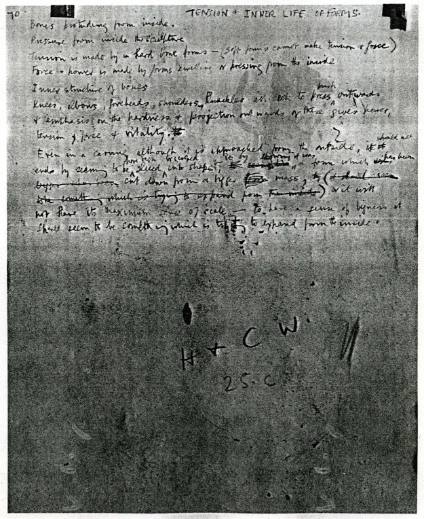 90
TENSION & INNER LIFE OF FORMS.
Bones protruding from inside.
Pressure from inside the sculpture
Tension is made by hard bone forms — (soft forms cannot make tension & force)
Force & power is made by forms swelling or pressing from the inside
Inner structure of bones
Knees, elbows, foreheads, shoulders, knuckles all to press push outwards
& emphasis on the hardness & projection outwards of these gives power,
tension & force & vitality.
Even in a carving although it is approached from the outside, it should all
ends by seeming to be into shape, from which
cut down from a mass, which is trying to expand from the inside) & it will
not have its maximum of scale, to have a sense of bigness it
should seem to be something which is trying to expand from the inside.
H + C W.
25. C